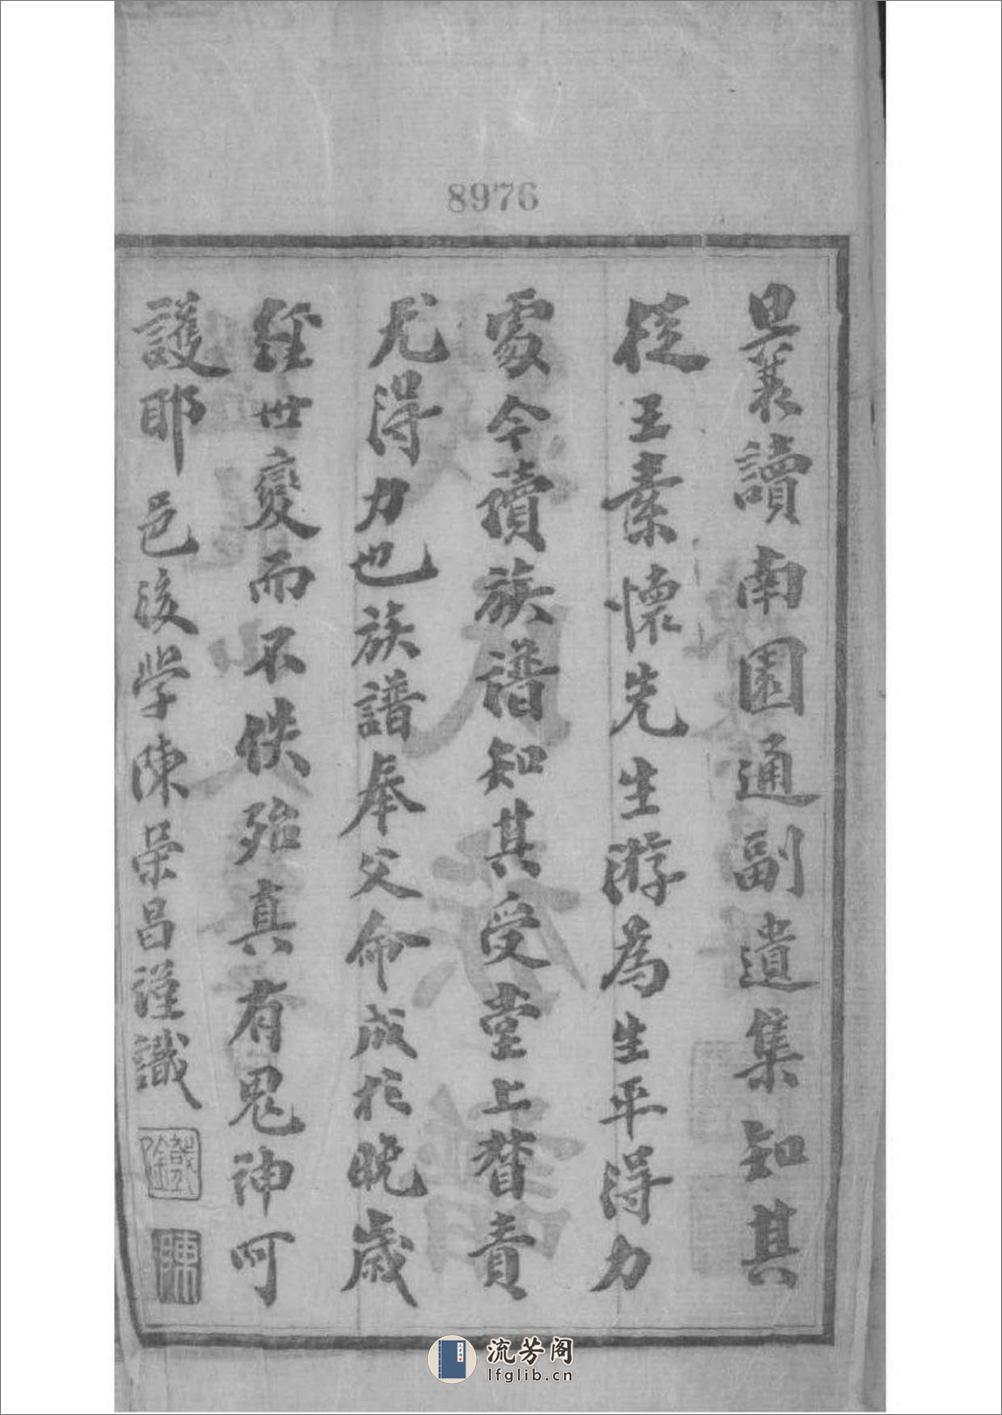 8976
曩讀南園通副遺集知其
從王素懷先生游為生平得力
處今讀族譜知其受堂上督責
尤得力也族譜奉父命成於晚歲
經世變而不佚殆真有鬼神呵
護耶 邑後學陳榮昌謹識
陳
流芳阁
lfglib.cn